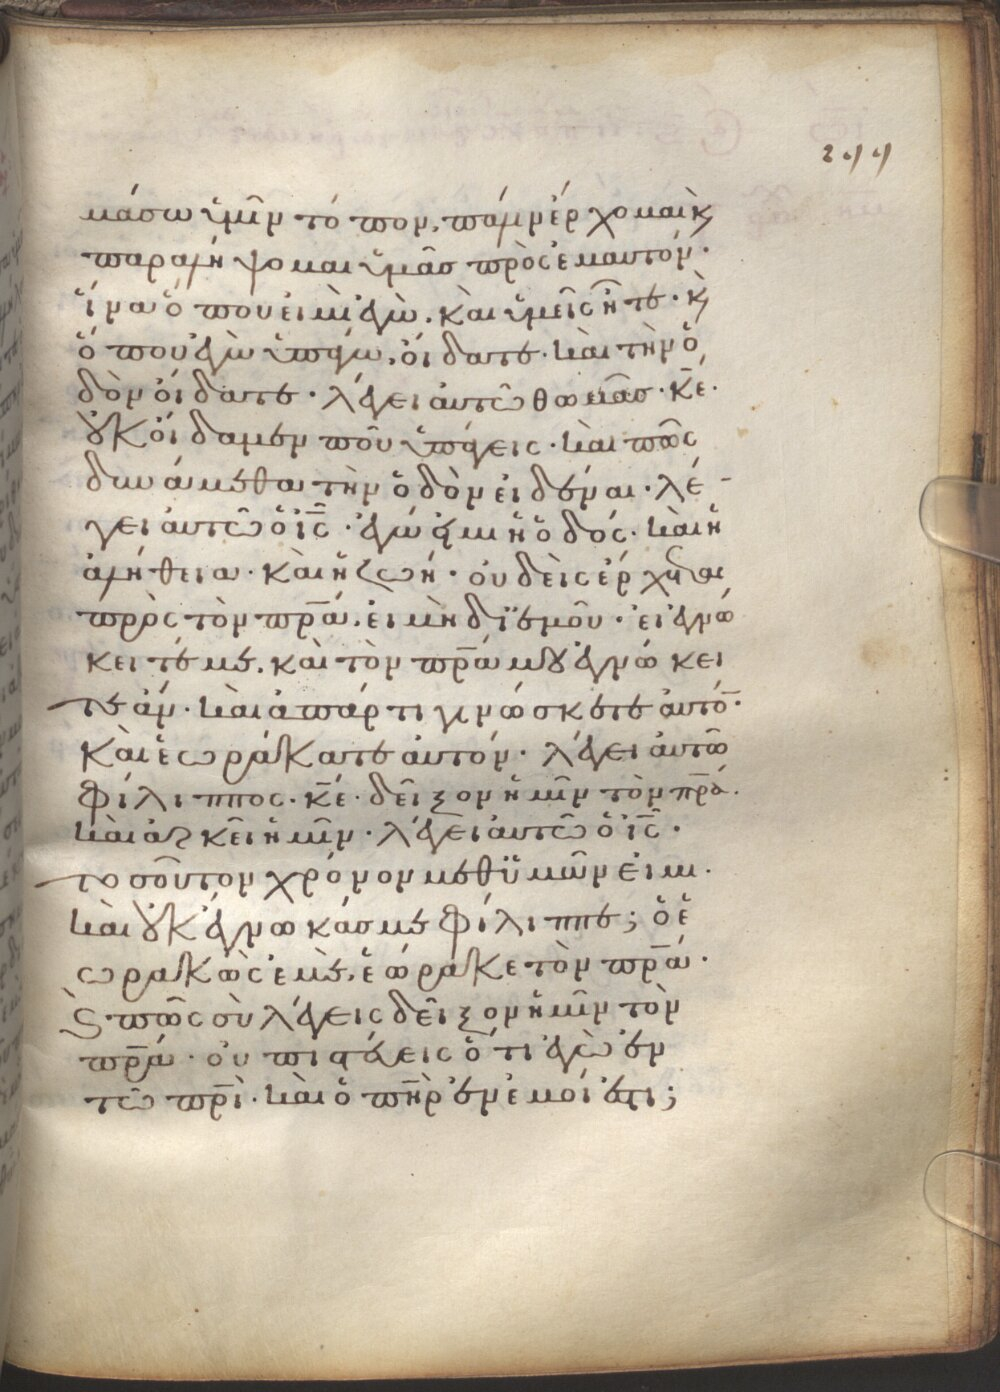 244
μάσω ὑμῖν τόπον, πάλιν ἔρχομαι κ̀
παραλήψομαι ὑμᾶς πρὸς ἐμαυτόν·
ἵνα ὅπου εἰμὶ ἐγὼ, καὶ ὑμεῖς ἦτε· κ̀
ὅπου ἐγὼ ὑπάγω, οἴδατε· καὶ τὴν ὁ
δὸν οἴδατε· λέγει αὐτῶ θωμᾶς· κ̅ε̅·
οὐκ οἴδαμεν ποῦ ὑπάγεις· καὶ πῶς
δυνάμεθα τὴν ὁδὸν εἰδέναι· λέ-
γει αὐτῶ ὁ ι̅ς̅· ἐγώ εἰμι ἡ ὁδός· καὶ ἡ
ἀλήθεια· καὶ ἡ ζωή· οὐδεὶς ἔρχεται
πρὸς τὸν πρ̅α, εἰ μὴ δι' ἐμοῦ· εἰ ἐγνώ
κειτέ με, καὶ τὸν πρ̅α μου ἐγνώκει
τε ἄν· καὶ ἀπάρτι γινώσκετε αὐτό̅·
καὶ ἑωράκατε αὐτόν· λέγει αὐτῶ
φίλιππος· κ̅ε̅· δεῖξον ἡμῖν τὸν πρ̅α·
καὶ ἀρκεῖ ἡμῖν· λέγει αὐτῶ ὁ ι̅ς̅·
τοσοῦτον χρόνον μεθ' ὑμῶν εἰμι·
καὶ οὐκ ἔγνωκάς με φίλιππε; ὁ ἑ
ωρακὼς ἐμὲ, ἑώρακε τὸν πρ̅α·
κ̀ πῶς σὺ λέγεις δεῖξον ἡμῖν τὸν
πρ̅α· οὐ πιστεύεις ὅτι ἐγὼ ἐν
τῶ πρ̅ι· καὶ ὁ πη̅ρ ἐν ἐμοί ἐστι;